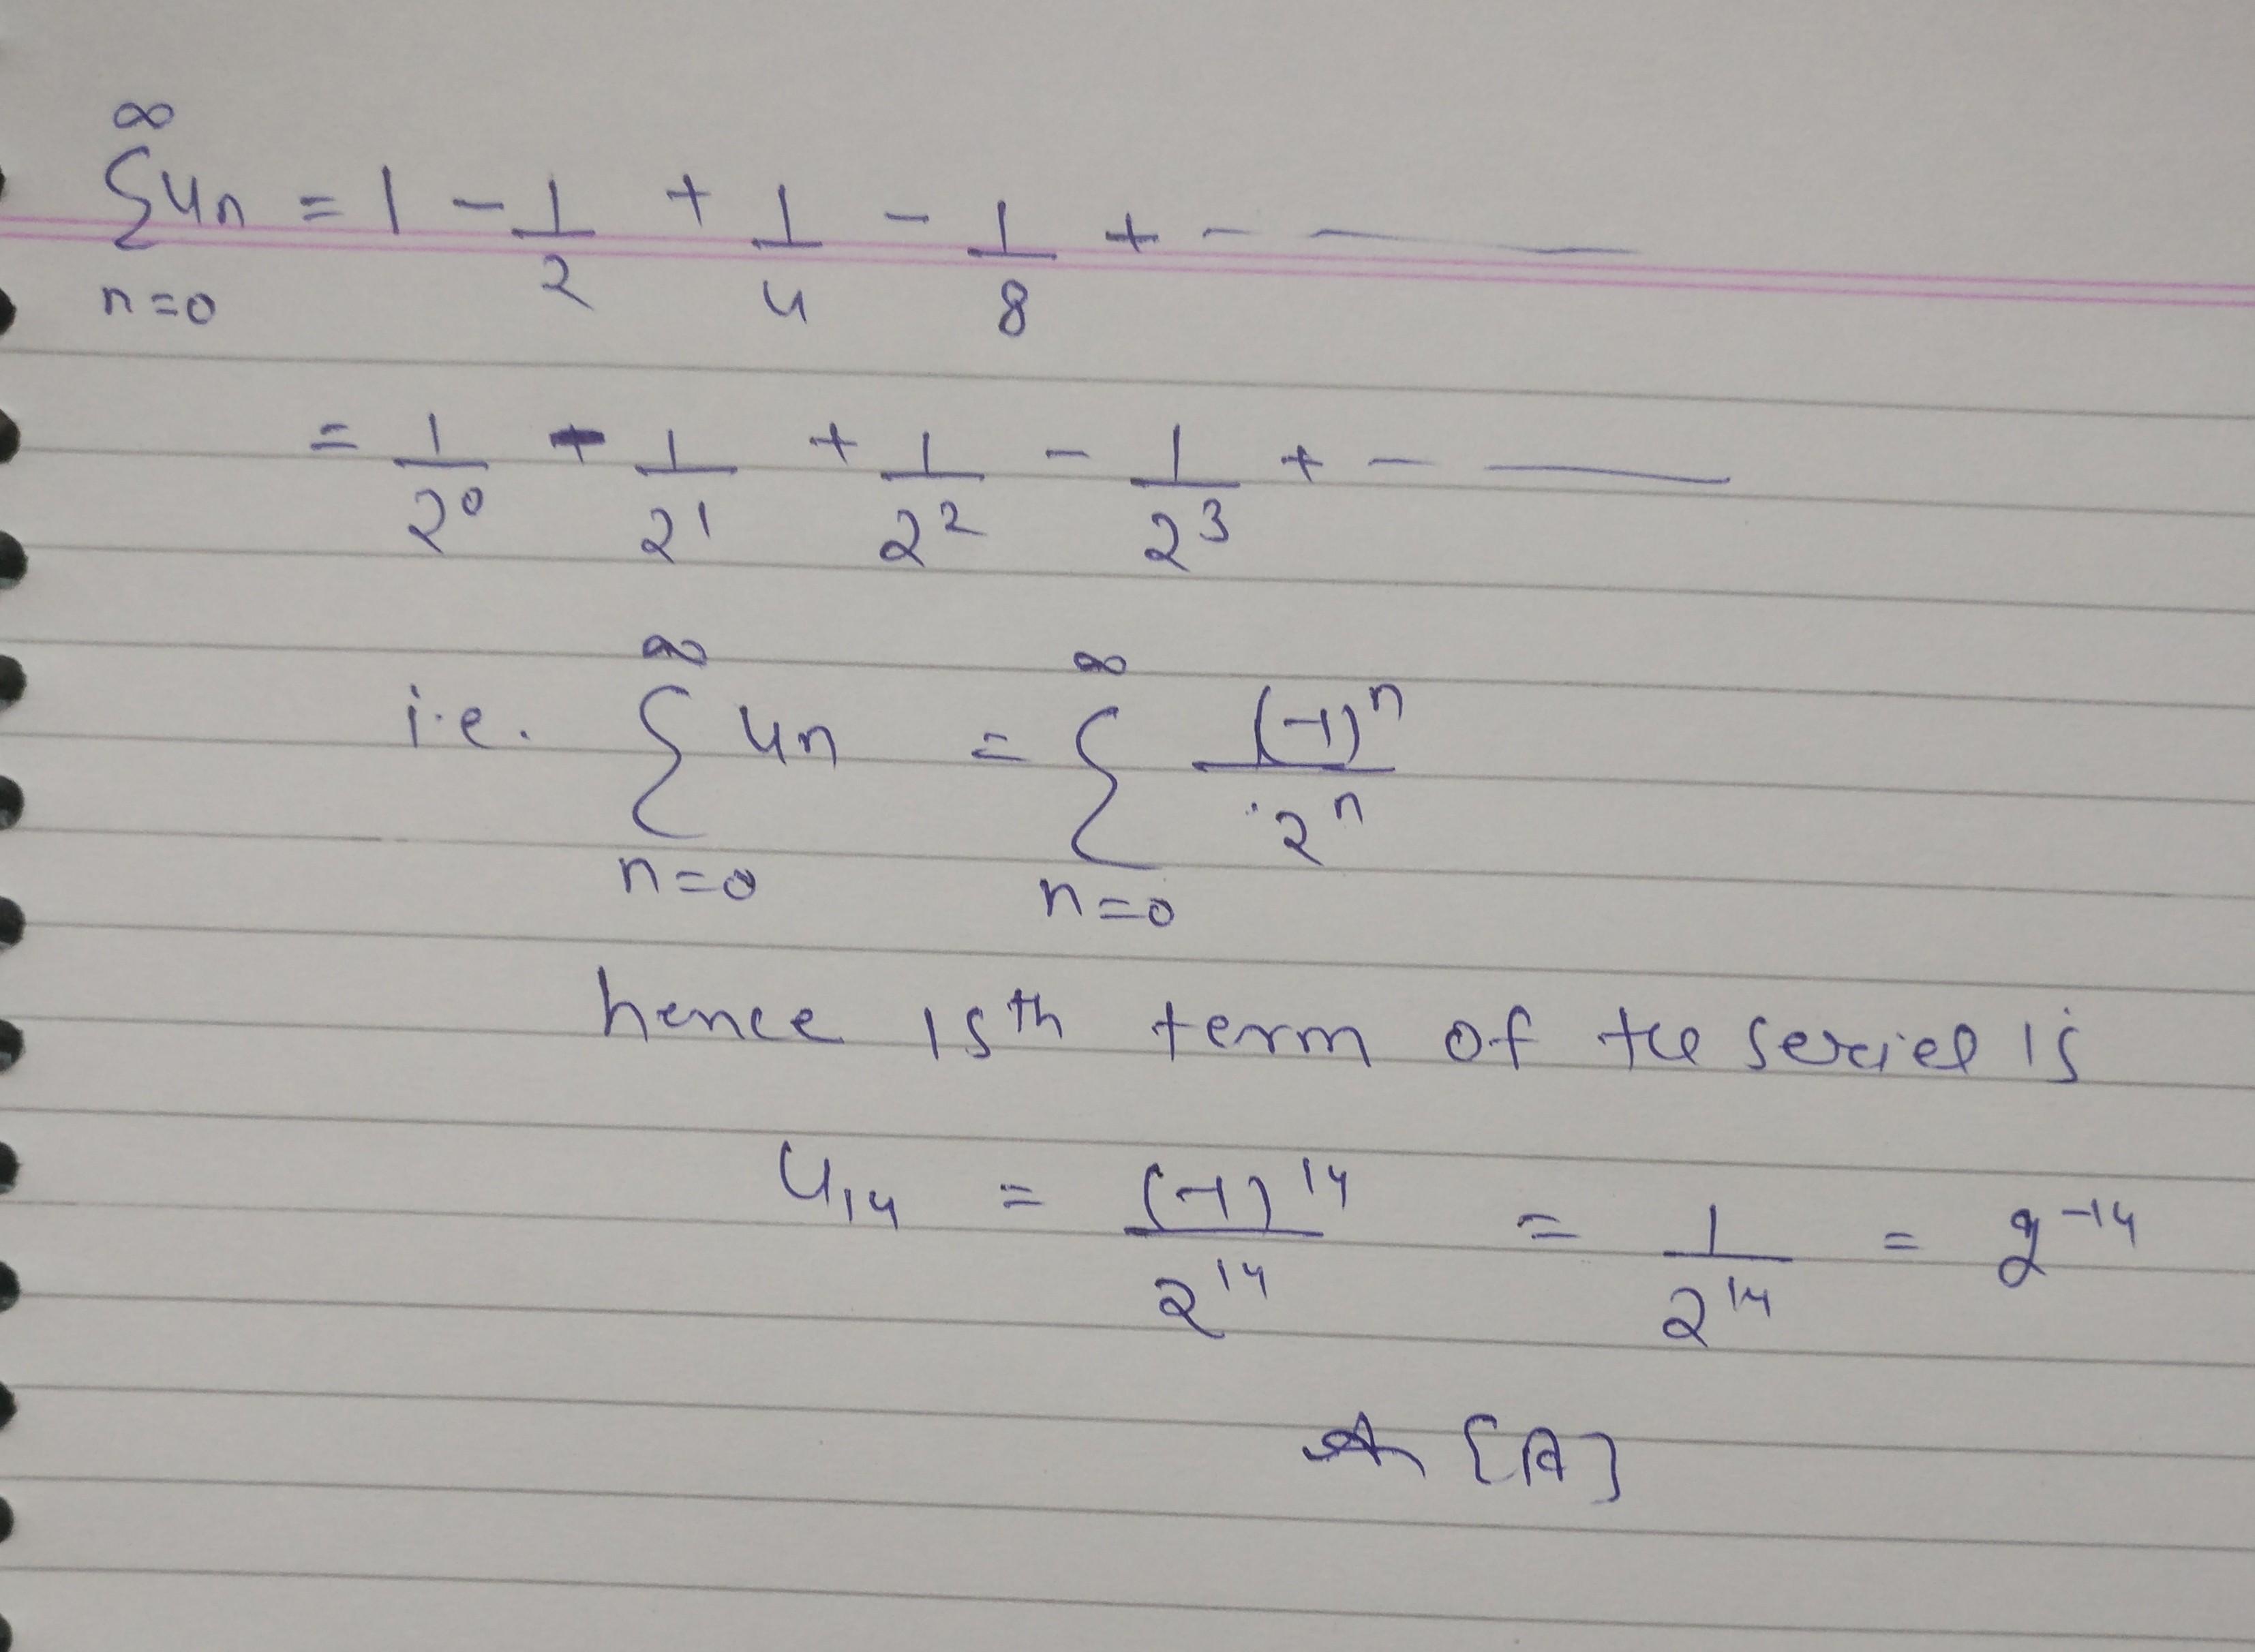 ∞
Σ un = 1 - 1/2 + 1/4 - 1/8 + - ——
n=0
= 1/2⁰ - 1/2¹ + 1/2² - 1/2³ + - ——
i.e. ∞ Σ n=0 un = ∞ Σ n=0 (-1)ⁿ/2ⁿ
hence 15th term of the series is
u₁₄ = (-1)¹⁴/2¹⁴ = 1/2¹⁴ = 2⁻¹⁴
[A]